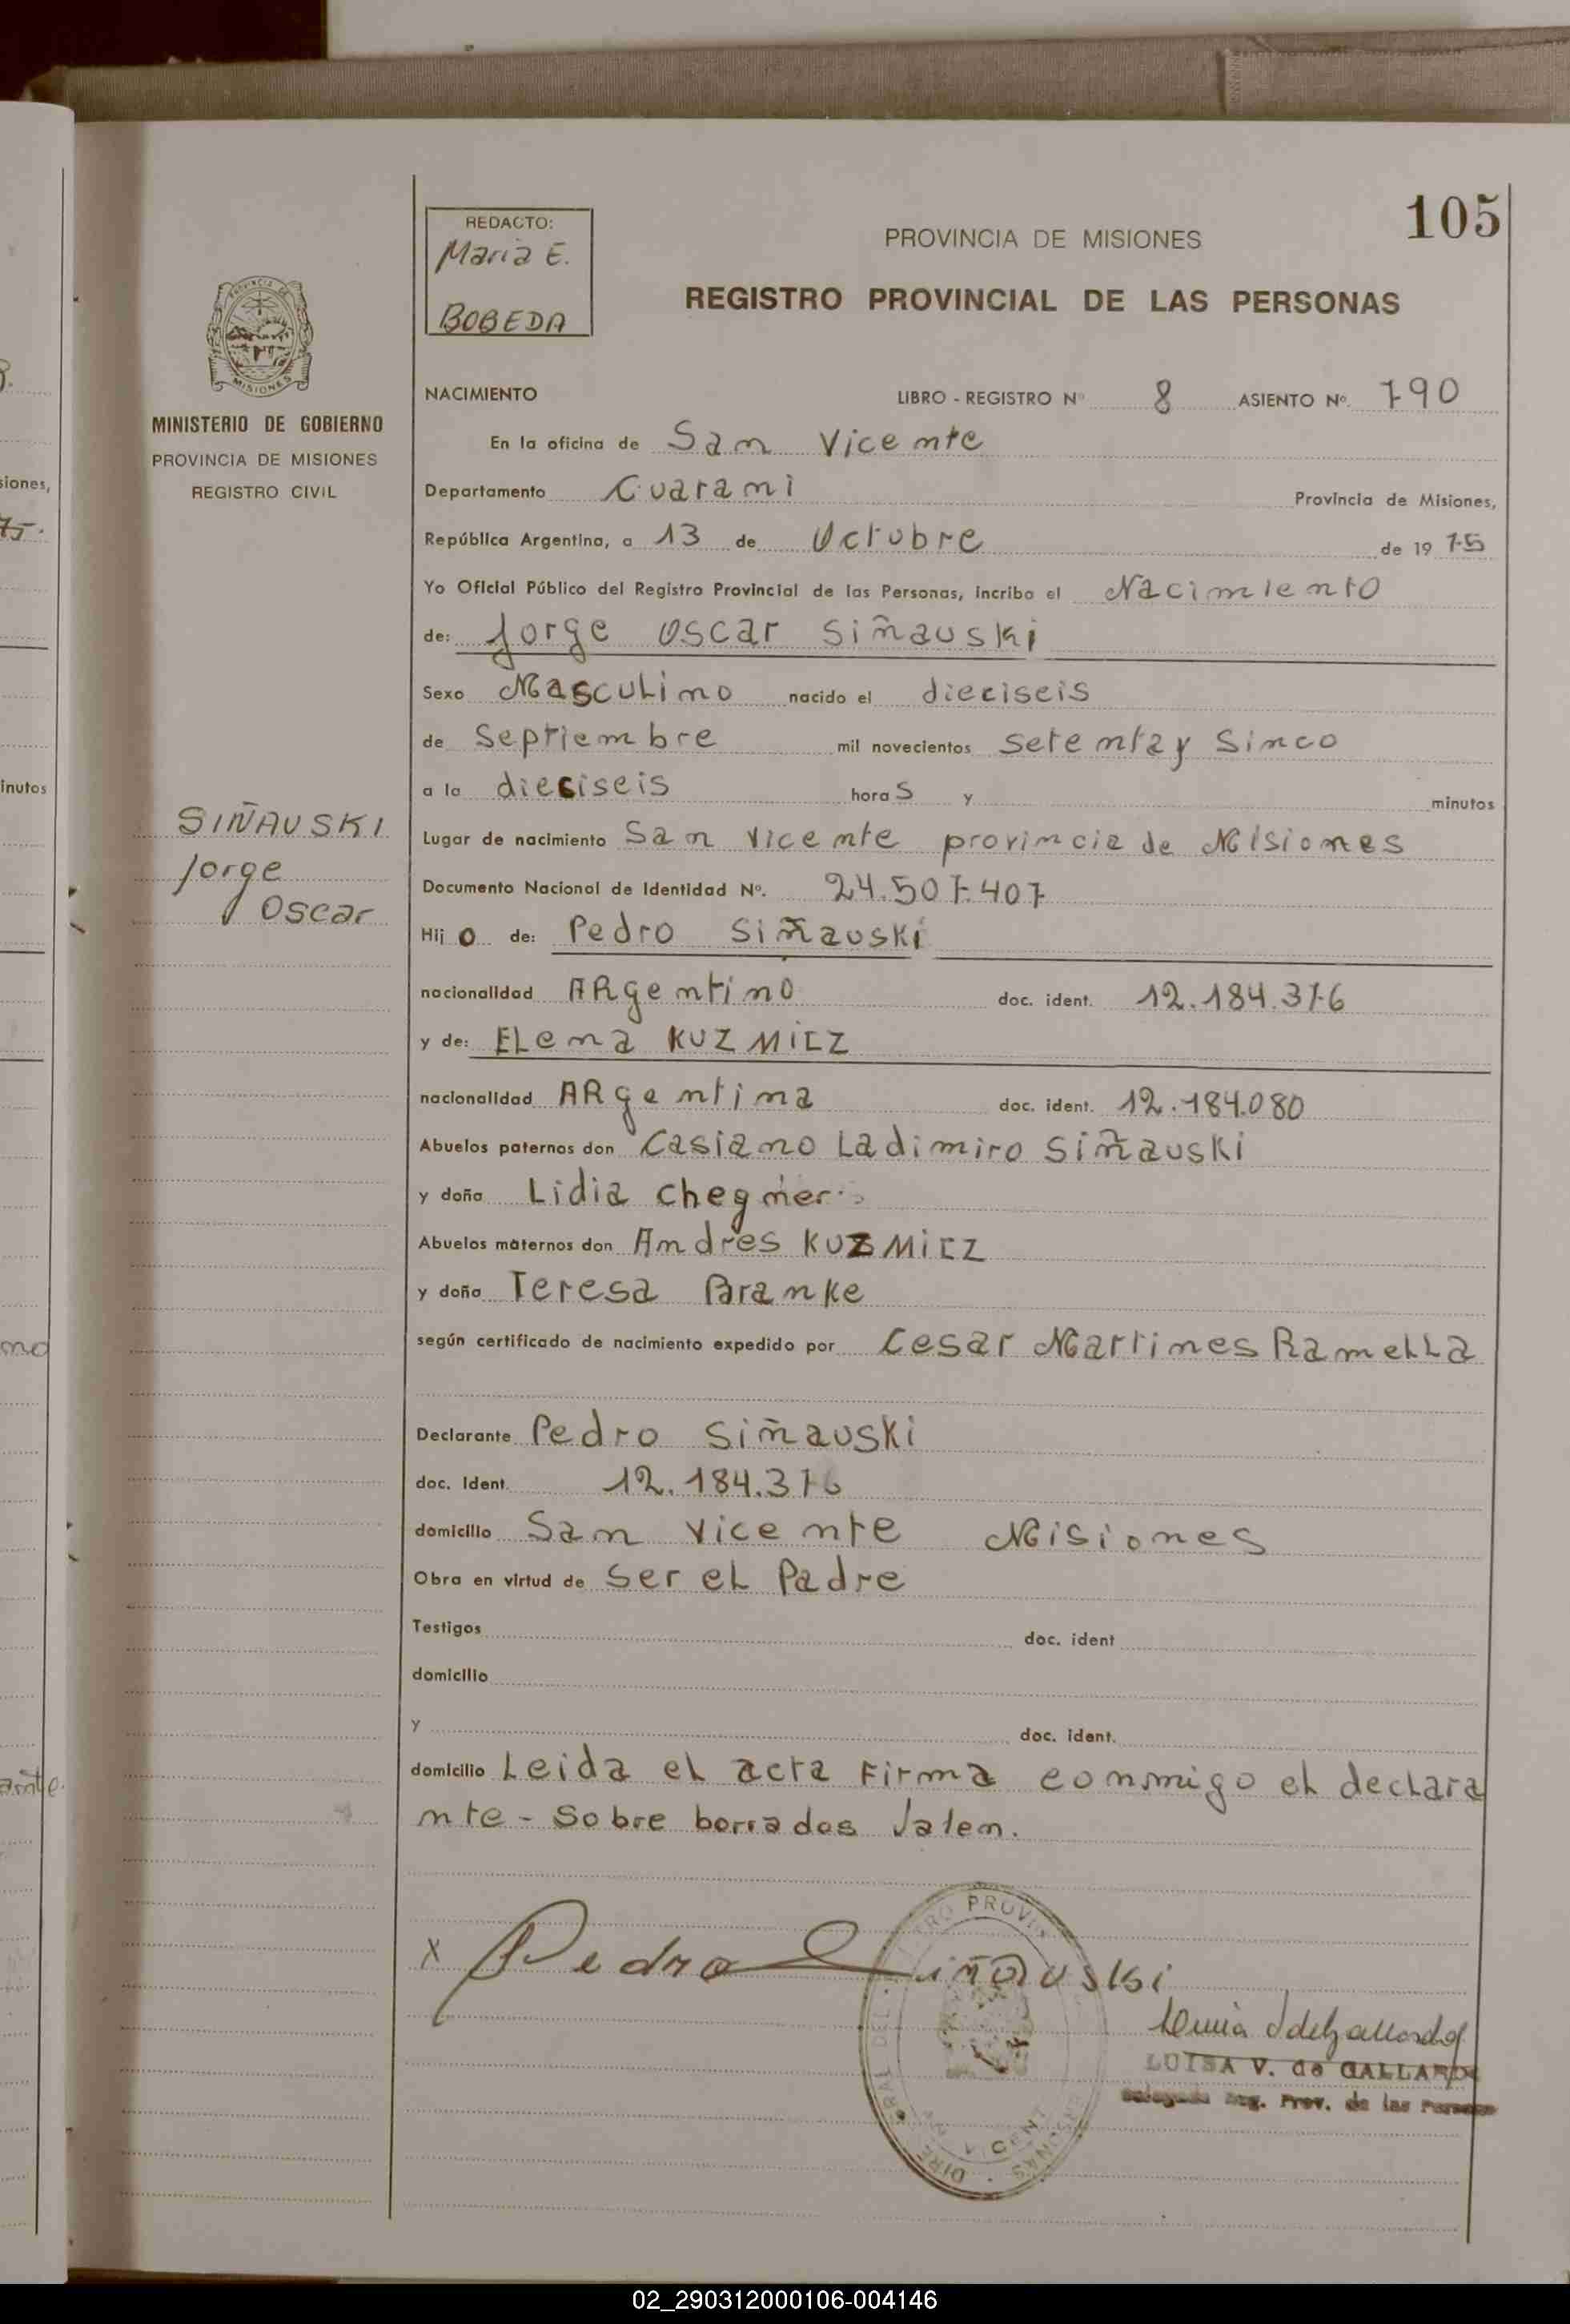 105
REDACTO:
Maria E.
BOBEDA
PROVINCIA DE MISIONES
REGISTRO PROVINCIAL DE LAS PERSONAS
MISIONES
MINISTERIO DE GOBIERNO
PROVINCIA DE MISIONES
REGISTRO CIVIL
SIÑAUSKI
Jorge
Oscar
NACIMIENTO LIBRO - REGISTRO Nº 8 ASIENTO Nº. 790
En la oficina de San Vicente
Departamento Guarani Provincia de Misiones,
República Argentina, a 13 de Octubre de 19 75
Yo Oficial Público del Registro Provincial de las Personas, incribo el Nacimiento
de: Jorge Oscar Siñauski
Sexo Masculino nacido el dieciseis
de Septiembre mil novecientos setenta y Sinco
a la dieciseis horas y minutos
Lugar de nacimiento San Vicente provincia de Misiones
Documento Nacional de Identidad Nº. 24.507.407
Hijo de: Pedro Siñauski
nacionalidad ARgentino doc. ident. 12.184.376
y de: ELena KUZMICZ
nacionalidad ARgentina doc. ident. 12.184.080
Abuelos paternos don Casiano Ladimiro Siñauski
y doña Lidia Chegner
Abuelos maternos don Andres KUZMICZ
y doña Teresa Branke
según certificado de nacimiento expedido por Cesar Martines Ramella
Declarante Pedro Siñauski
doc. Ident. 12.184.376
domicilio San Vicente Misiones
Obra en virtud de ser el Padre
Testigos doc. ident
domicilio
y doc. ident.
domicilio Leida el acta Firma conmigo el declara
nte - Sobre borrados Valen.
X Pedro Siñauski
LUISA V. de GALLARDO
Reg. Prov. de las Personas
02_290312000106-004146